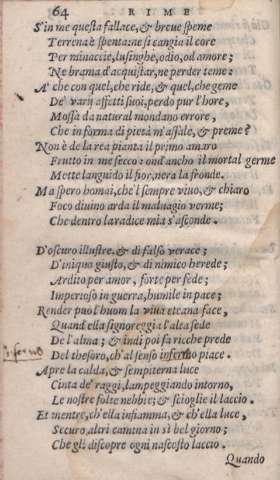 64 RIME
S'in me questa fallace, & breue speme
Terrena è spenta: ne si cangia il core
Per minaccie, lusinghe, odio, od amore;
Ne brama d'acquistar, ne perder teme:
A' che con quel, che ride, & quel, che geme
De' varij affetti suoi, perdo pur l'hore,
Mossa da natural mondano errore,
Che in forma di pietà m'assale, & preme?
Non è de la rea pianta il primo amaro
Frutto in me secco: ond'ancho il mortal germe
Mette languido il fior, nera la fronde.
Ma spero homai, che'l sempre viuo, & chiaro
Foco diuino arda il maluagio verme;
Che dentro la radice mia s'asconde.
D'oscuro illustre, & di falso verace;
D'iniquo giusto, & di nimico herede;
Ardito per amor, forte per fede;
Imperioso in guerra, humile in pace;
Render puo l'huom la viua eterna face,
Quand'ella signoreggia l'alta sede
De l'alma; & indi poi fa ricche prede
inferno
Del thesoro, ch'al senso infermo piace.
Apre la calda, & sempiterna luce
Cinta de' raggi, lampeggiando intorno,
Le nostre folte nebbie; & scioglie il laccio.
Et mentre, ch'ella infiamma, & ch'ella luce,
Securo altri camina in sì bel giorno;
Che gli discopre ogni nascosto laccio.
Quando